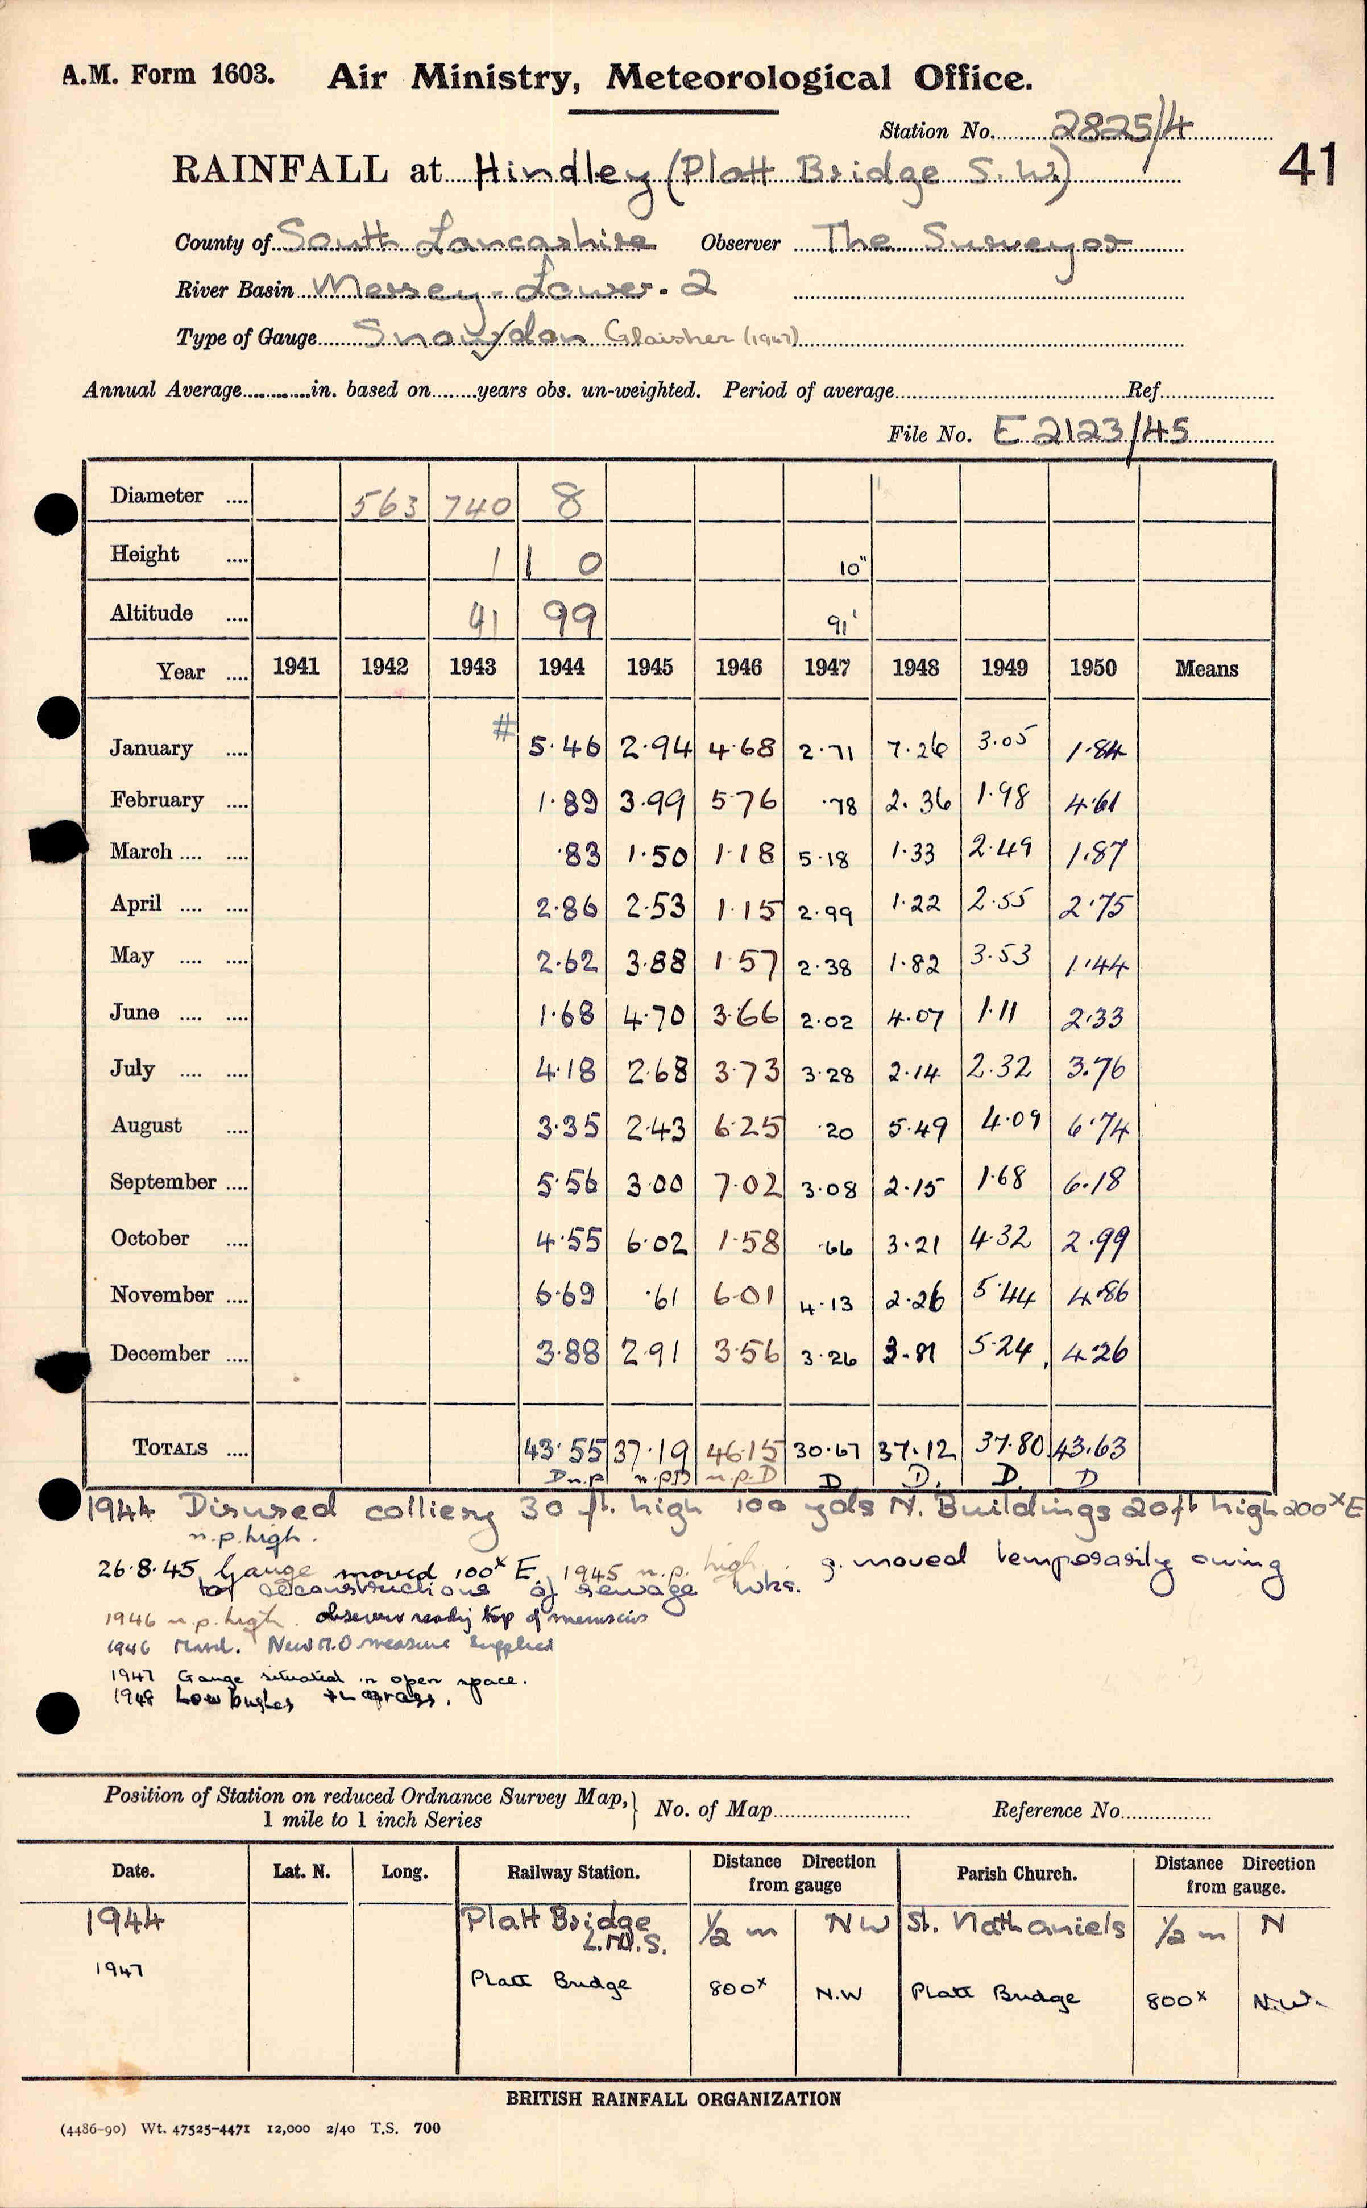 A.M. Form 1603. Air Ministry, Meteorological Office.
Station No. 2825/4
41
RAINFALL at Hindley (Platt Bridge S.W.)
County of South Lancashire Observer The Surveyor
River Basin Mersey - Lower. 2
Type of Gauge Snowdon Glaisher (1947)
Annual Average in. based on years obs. un-weighted. Period of average Ref.
File No. E 2123/45
Diameter .... 563 740 8
Height .... 1 1 0 10"
Altitude .... 91 99 91'
Year .... 1941 1942 1943 1944 1945 1946 1947 1948 1949 1950 Means
#
January .... 5.46 2.94 4.68 2.71 7.26 3.05 1.84
February .... 1.89 3.99 5.76 .78 2.36 1.98 4.61
March .... .... .83 1.50 1.18 5.18 1.33 2.49 1.87
April .... .... 2.86 2.53 1.15 2.99 1.22 2.55 2.75
May .... .... 2.62 3.88 1.57 2.38 1.82 3.53 1.44
June .... .... 1.68 4.70 3.66 2.02 4.07 1.11 2.33
July .... .... 4.18 2.68 3.73 3.28 2.14 2.32 3.76
August .... 3.35 2.43 6.25 .20 5.49 4.09 6.74
September .... 5.56 3.00 7.02 3.08 2.15 1.68 6.18
October .... 4.55 6.02 1.58 .66 3.21 4.32 2.99
November .... 6.69 .61 6.01 4.13 2.26 5.44 4.86
December .... 3.88 2.91 3.56 3.26 3.81 5.24 4.26
TOTALS .... 43.55 37.19 46.15 30.67 37.12 37.80 43.63
D n.p n.p D n.p. D D D. D. D
1944 Disused colliery 30 ft. high 100 yds N. Buildings 20ft high 200x E
n.p. high.
26.8.45 Gauge moved 100x E. 1945 n.p. high. g. moved temporarily owing
to reconstructions of sewage wks.
1946 n.p. high. observer reading top of meniscus
1946 March. New M.O. measure supplied
1947 Gauge situated in open space.
1948 Low bushes grass.
Position of Station on reduced Ordnance Survey Map, 1 mile to 1 inch Series No. of Map Reference No.
Date. Lat. N. Long. Railway Station. Distance Direction from gauge Parish Church. Distance Direction from gauge.
1944 Platt Bridge L.M.S. 1/2 m NW St. Nathaniels 1/2 m N
1947 Platt Bridge 800x N.W Platt Bridge 800x N.W.
BRITISH RAINFALL ORGANIZATION
(4486-90) Wt. 47525-4471 12,000 2/40 T.S. 700